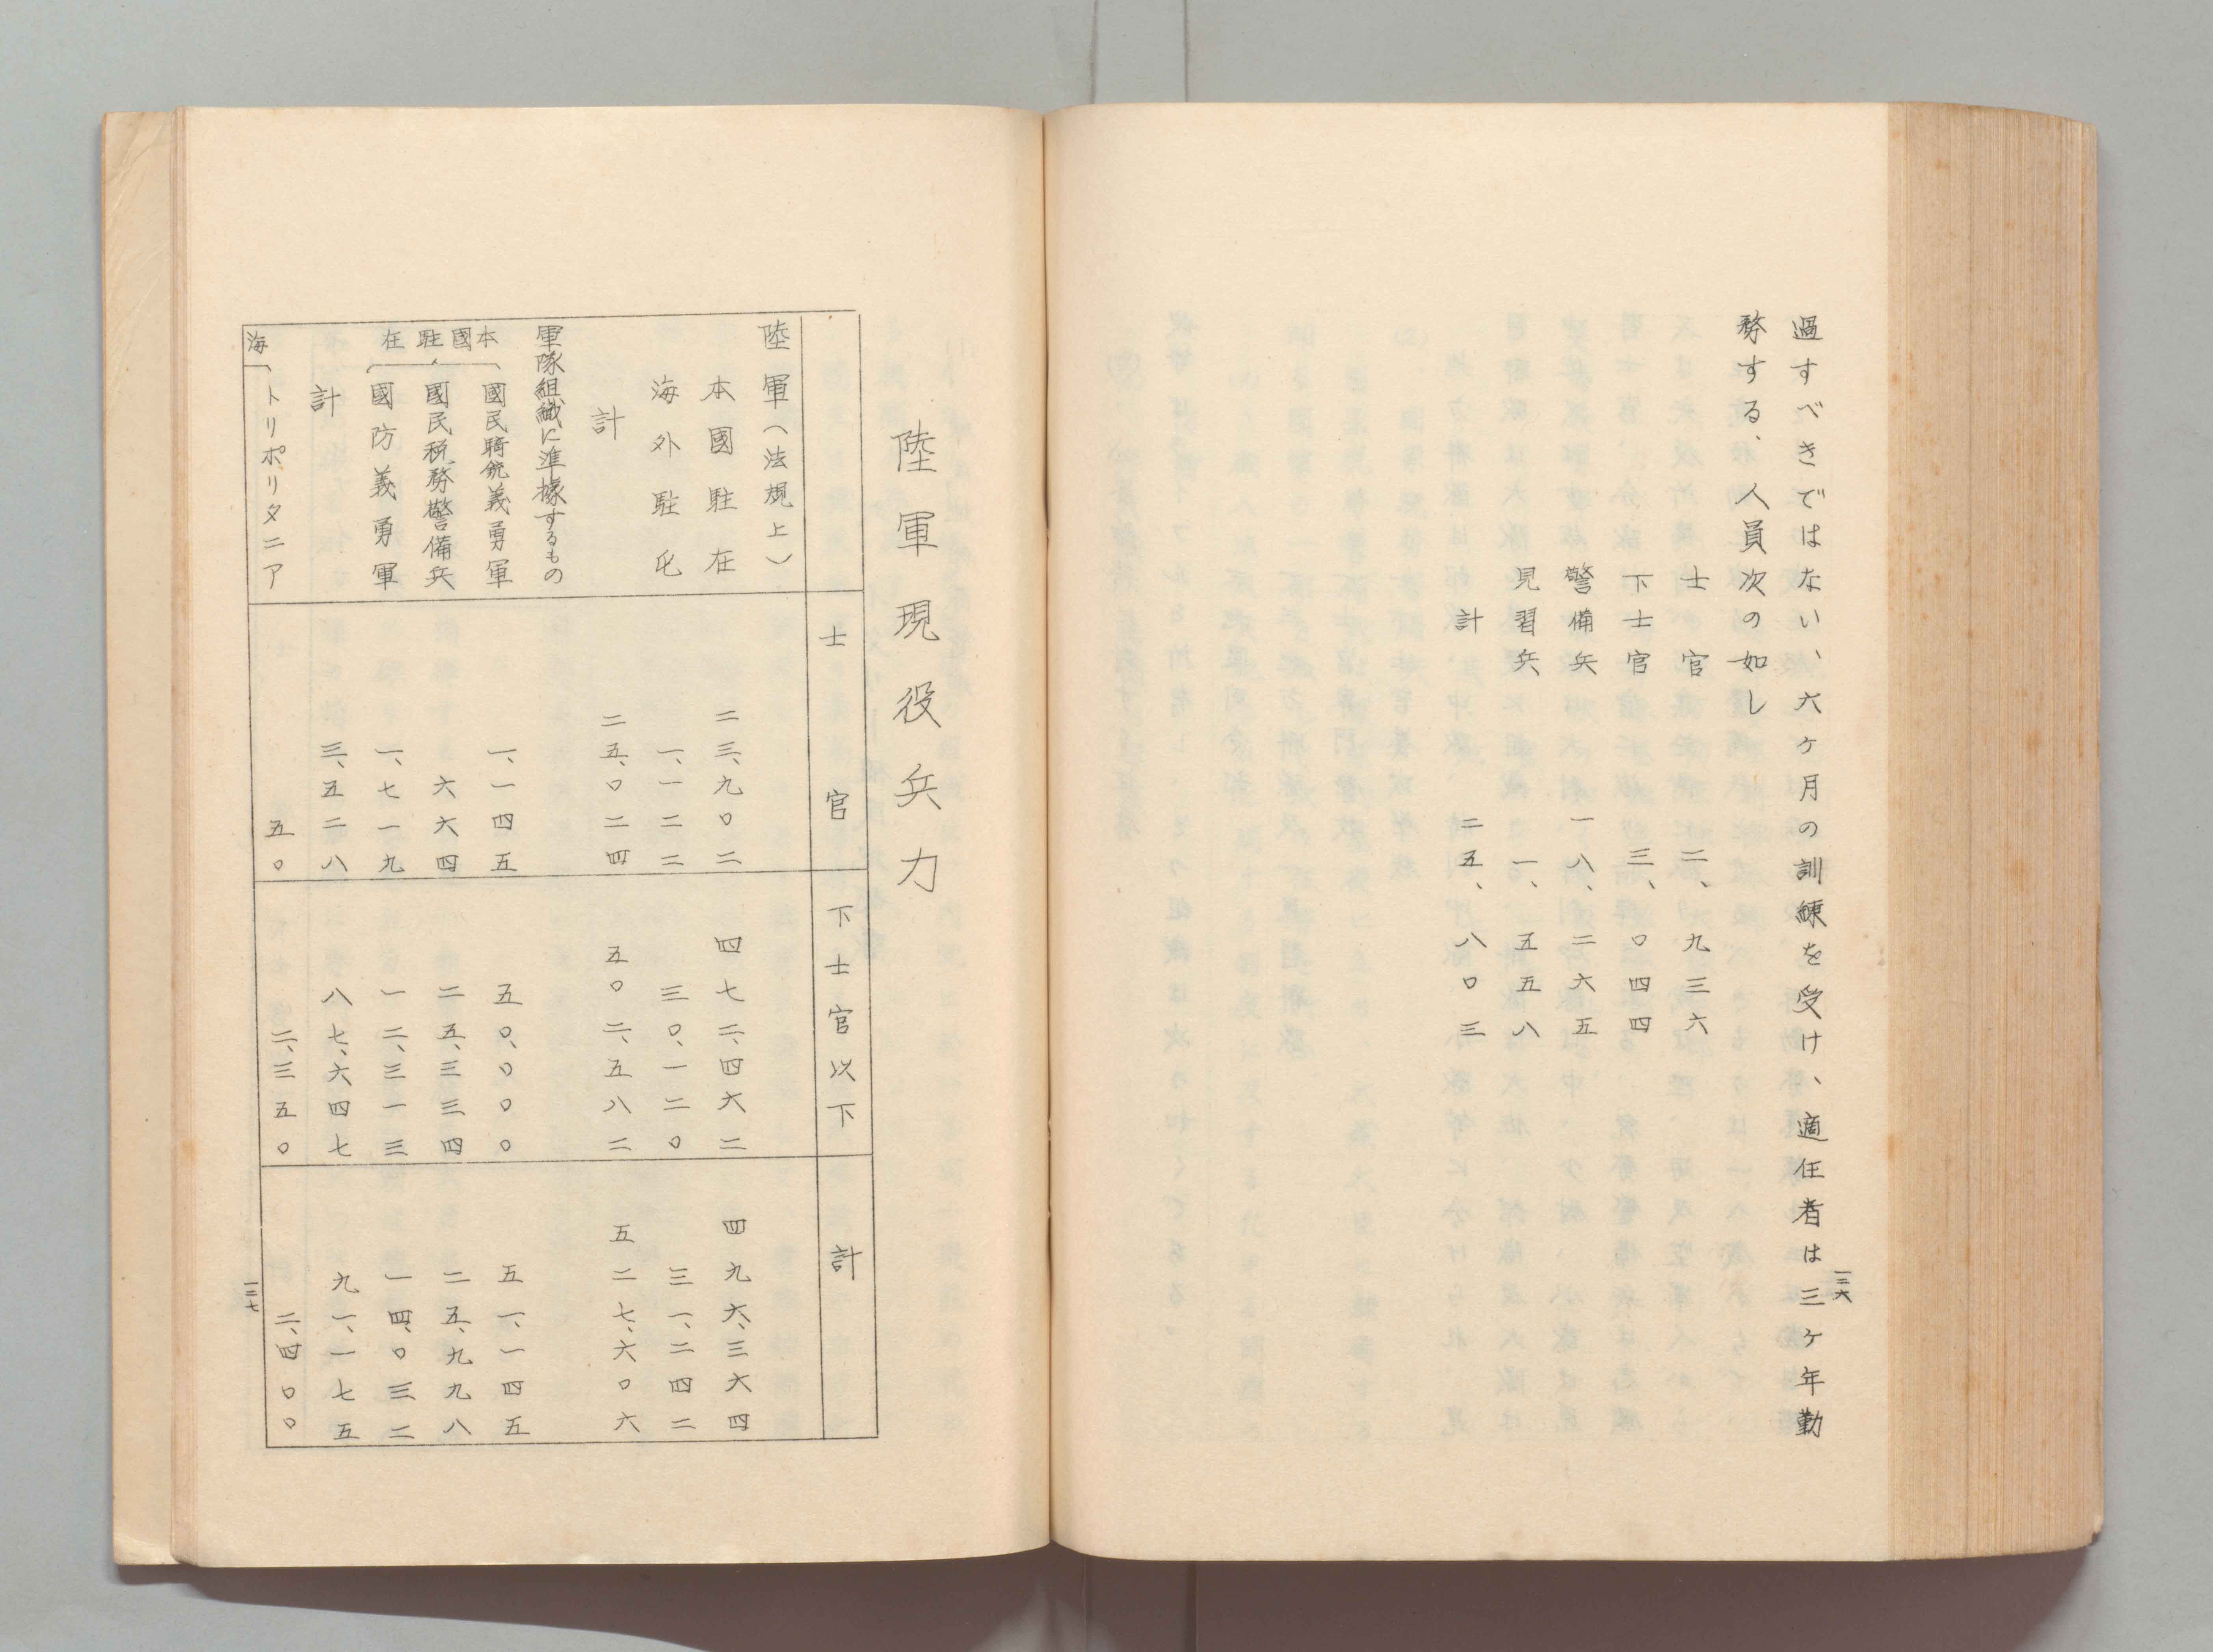 過すべきではない、六ヶ月の訓練を受け、適任者は三ヶ年勤
務する、人員次の如し
士官 二、九三六
下士官 三、〇四四
警備兵 一八、二六五
見習兵 一、五五八
計 二五、八〇三
一三六
陸軍現役兵力
士官 下士官以下 計
陸軍(法規上)
本國駐在 二三、九〇二 四七二、四六二 四九六、三六四
海外駐屯 一、一二二 三〇、一二〇 三一、二四二
計 二五、〇二四 五〇二、五八二 五二七、六〇六
軍隊組織に準據するもの
本國駐在
國民騎銃義勇軍 一、一四五 五〇、〇〇〇 五一、一四五
國民税務警備兵 六六四 二五、三三四 二五、九九八
國防義勇軍 一、七一九 一二、三一三 一四、〇三二
計 三、五二八 八七、六四七 九一、一七五
海
トリポリタニア 五〇 二、三五〇 二、四〇〇
一三七